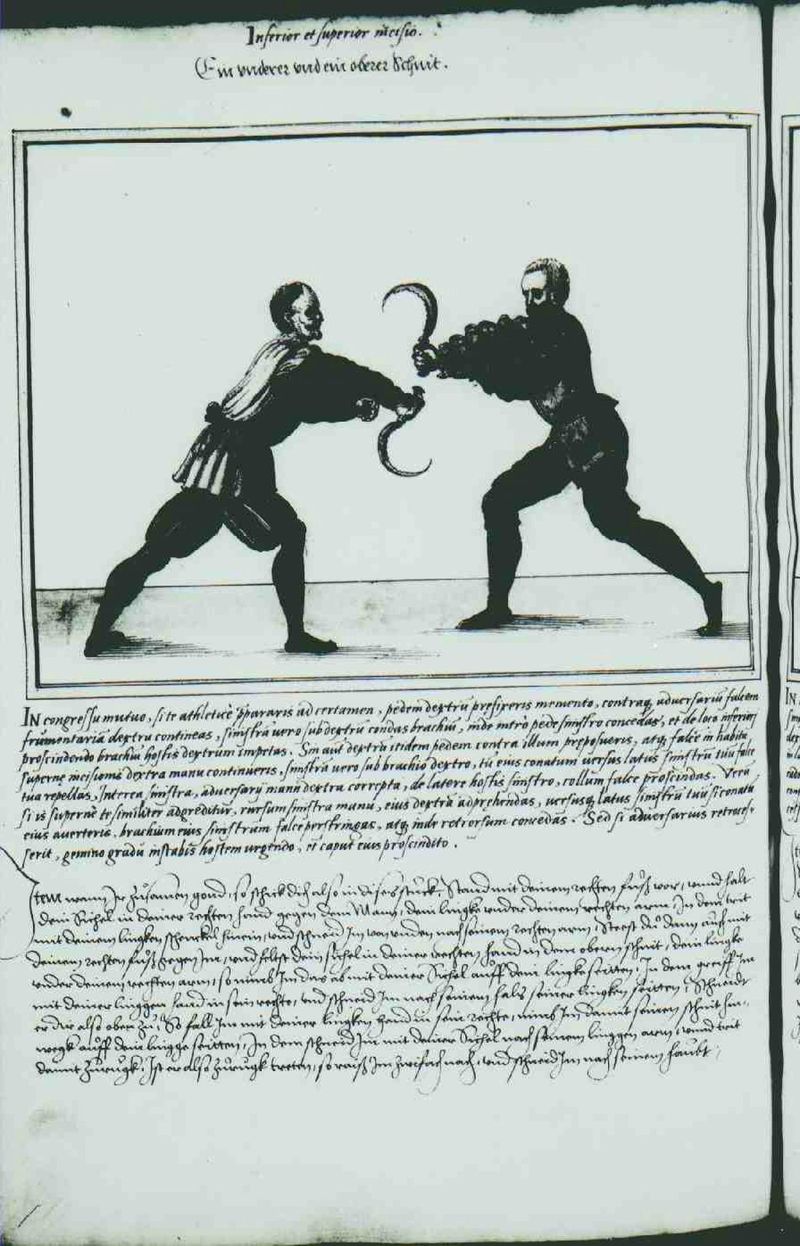 Inferior et superior incisio.
Ein vnderer vnd ein oberer Schnit.
IN congressu mutuo, si te athleticè præpararis ad certamen, pedem dextrũ prefixeris memento, contraq, aduersariũ falcem
frumentariã dextra contineas, sinistrã uero sub dextrũ condas brachiũ, inde intrò pede sinistro concedas, et de loco inferiori
proscindendo brachiũ hostis dextrum impetas. Sin aut dextrũ itidem pedem contra illum preposueris, atq, falce in habitu
supernę incisionis dextra manu continueris, sinistrã uero sub brachio dextro, tu eius conatum uersus latus sinistrũ tuũ falce
tua repellas. Interea sinistra, aduersarij manũ dextra correpta, de latere hostis sinistro, collum falce proscindas. Verũ
si is supernè te similiter adgreditur, rursum sinistra manu, eius dextrã adprehendas, uersusq, latus sinistrũ tuũ si conatũ
eius auerteris, brachium eius sinistrum falce perstringas, atq, inde retrorsum concedas. Sed si aduersarius retroces-
serit, gemino gradu instabis hostem urgendo, et caput eius proscindito.
Item wann Ir zusamen gond, so schick dich also in dises stuck, Stand mit deinem rechten fuß vor, vnnd halt
dein Sichel in deiner rechten hand gegen dem Mann, dein lingke vnder deinem rechten arm, In dem trit
mit deinem lingken schenckel hinein, vnd schneid Im von vnden nach seinem rechten arm, Steest du dann auch mit
deinem rechten fuß gegen Im, vnd heltst dein sichel in deiner rechten hand in dem obern schnit, dein lingke
vnder deinem rechten arm, so nimb Im das ab mit deiner Sichel auff dein lingke seitten, In dem greiff Im
mit deiner linggen hand in sein rechte, vnd schneid Im nach seinem hals seiner lingken seitten, Schneidt
er dir also oben zu, So fall Im mit deiner lingken hand in sein rechte, nimb Im damit seinen schnit hin-
wegk auff dein lingge seitten, In dem schneid Im mit deiner Sichel nach seinem linggen arm, vnnd trit
damit zurugk, Ist er also zurugk tretten, so volg Im zwifach nach, vnd schneid Im nach seinem haubt.